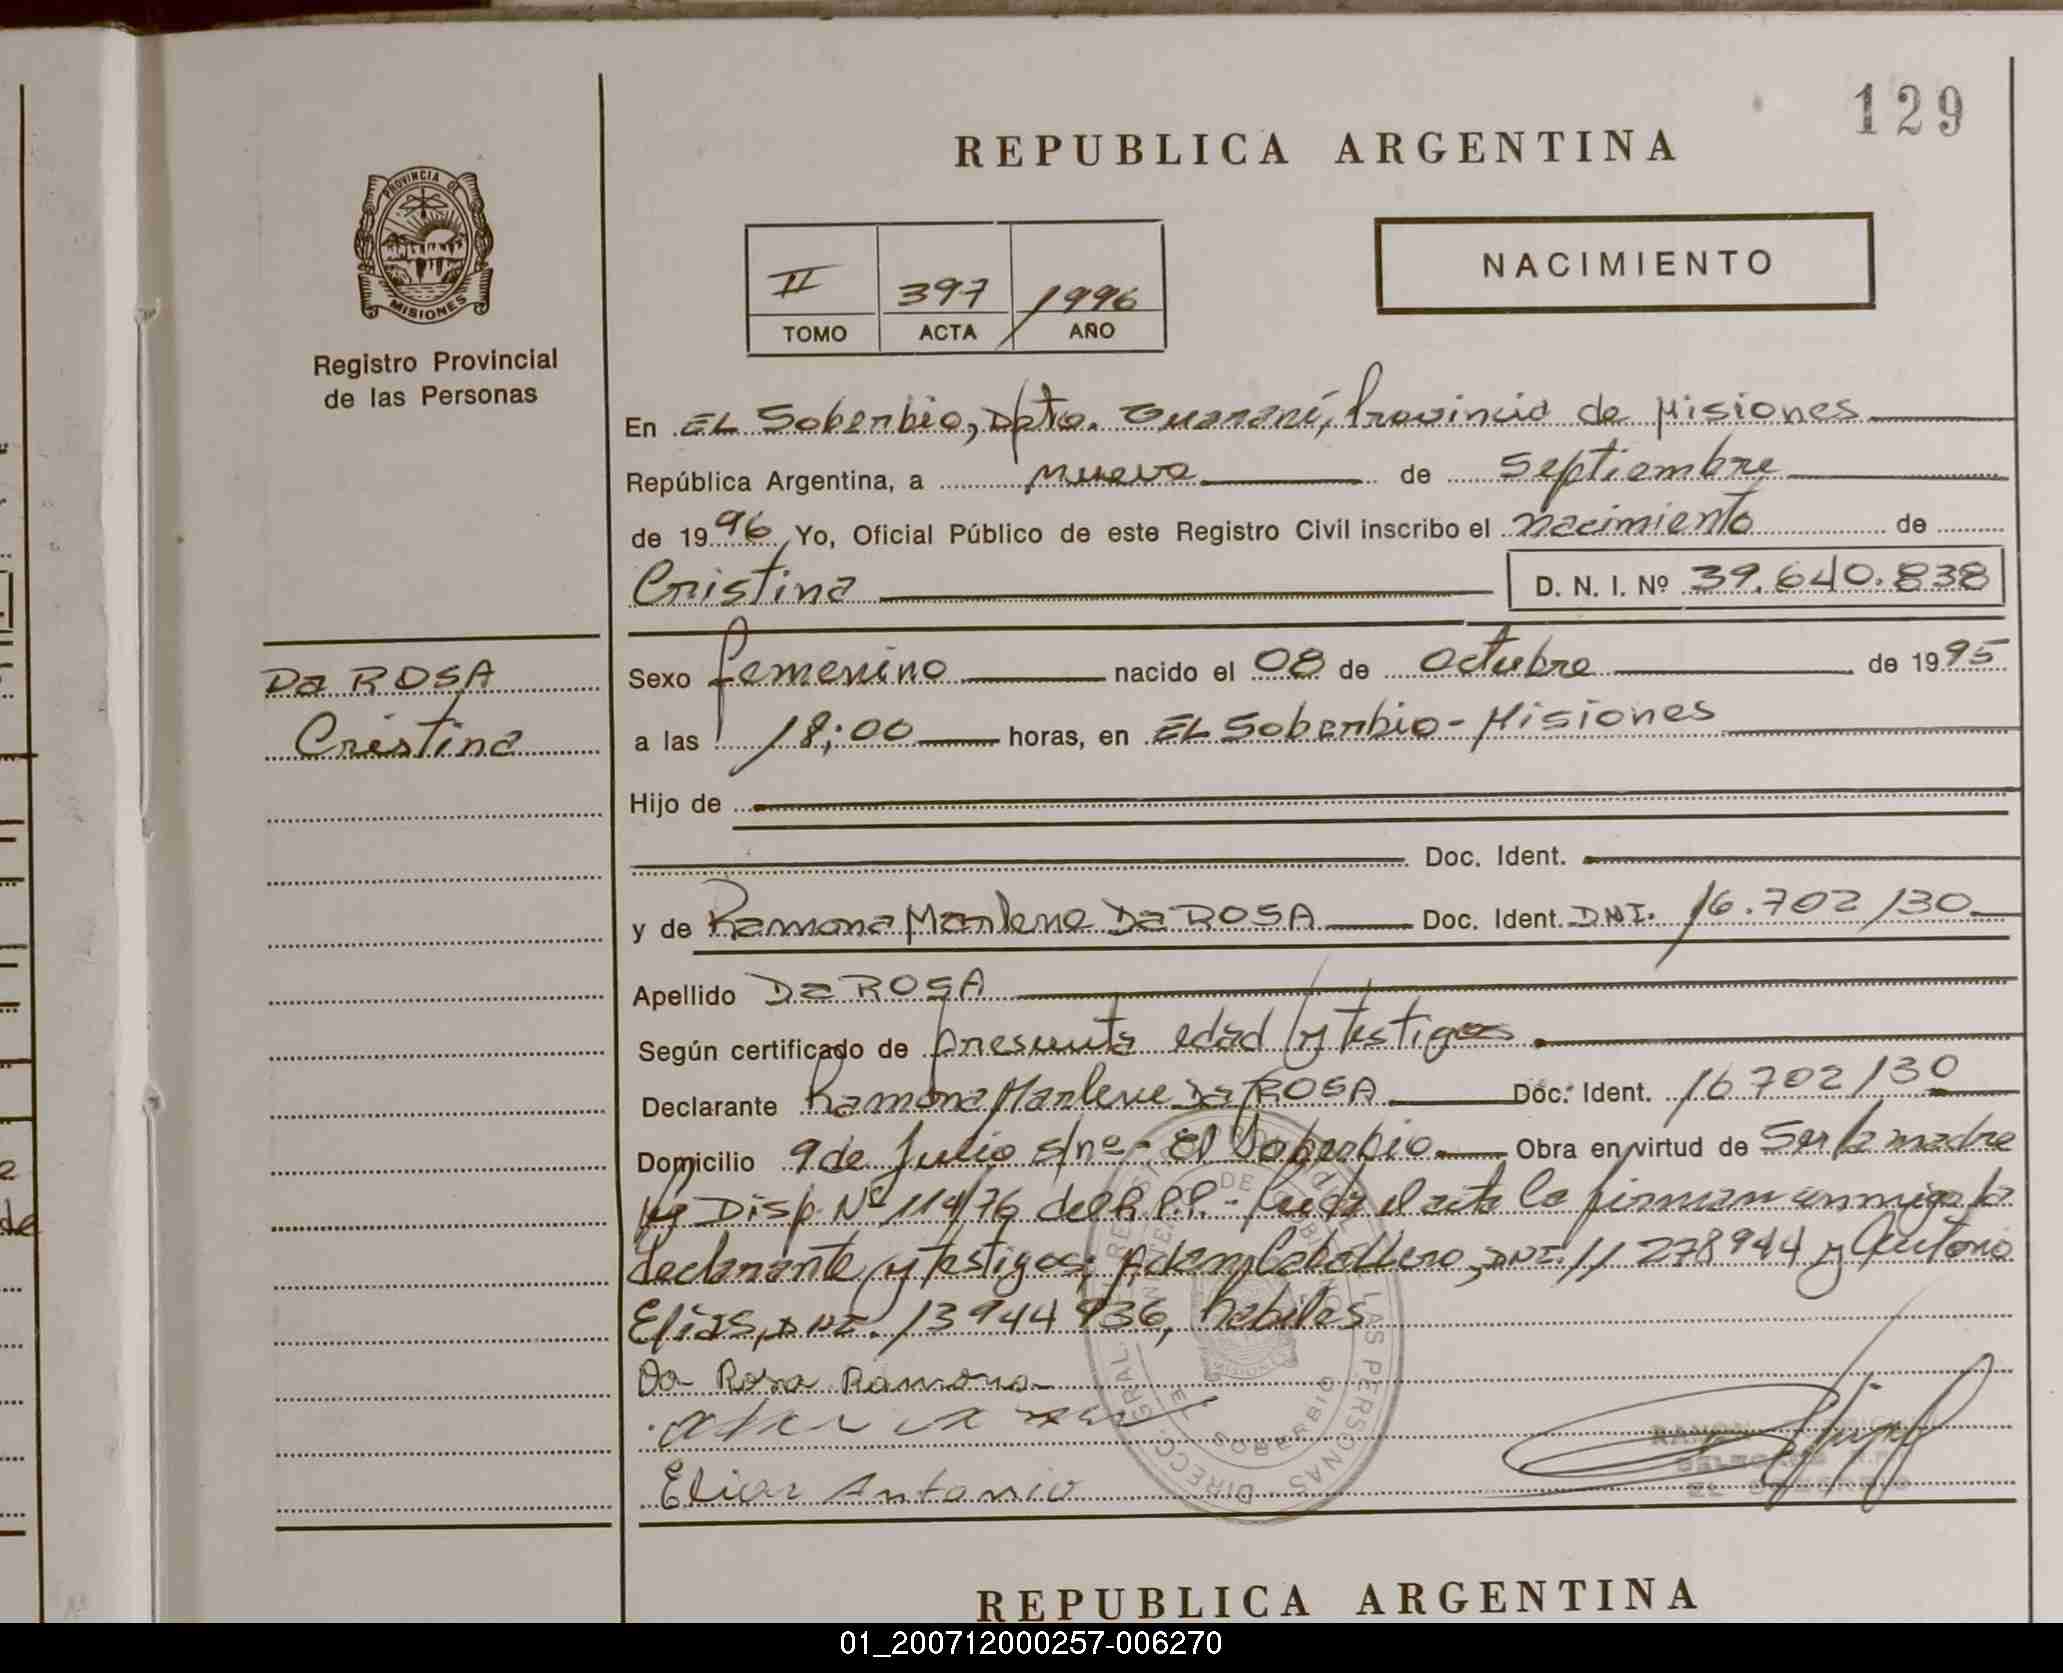 129
REPUBLICA ARGENTINA
PROVINCIA DE
MISIONES
Registro Provincial
de las Personas
II 397 1996
TOMO ACTA AÑO
NACIMIENTO
En EL Soberbio, Dpto. Guaraní, Provincia de Misiones
República Argentina, a nueve de septiembre
de 1996 Yo, Oficial Público de este Registro Civil inscribo el nacimiento de
Cristina D. N. I. Nº 39.640.838
Da ROSA
Cristina
Sexo femenino nacido el 08 de octubre de 1995
a las 18:00 horas, en EL Soberbio - Misiones
Hijo de
Doc. Ident.
y de Ramona Marlene Da ROSA Doc. Ident. DNI. 16.702130
Apellido Da ROSA
Según certificado de presunta edad y testigos
Declarante Ramona Marlene Da ROSA Doc. Ident. 16702130
Domicilio 9 de Julio s/nº - El Soberbio Obra en virtud de Ser la madre
y Disp. Nº 114/76 del R.P.P. - Leida el acta la firman conmigo la
declarante y testigos; Adam Caballero, DNI. 11278944 y Antonio
Elias, DNI. 13944936, habiles
Da Rosa Ramona
Elias Antonio
EL SOBERBIO
REPUBLICA ARGENTINA
01_200712000257-006270